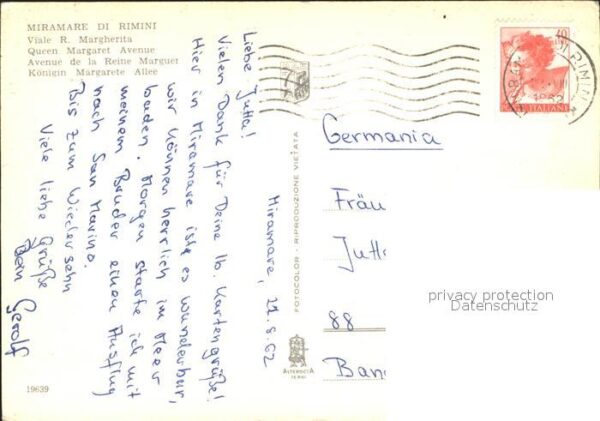 MIRAMARE DI RIMINI
Viale R. Margherita
Queen Margaret Avenue
Avenue de la Reine Marguer
Königin Margarete Allee
Liebe Jutta!
Vielen Dank für Deine lb. Kartengrüße!
Hier in Miramare ist es wunderbar,
wir können herrlich im Meer
baden. Morgen starte ich mit
meinem Bruder einen Ausflug
nach San Marino.
Bis zum Wiedersehn
Viele liebe Grüße
Dein Gerolf
Miramare, 21.8.62
19639
FOTOCOLOR - RIPRODUZIONE VIETATA
ALTEROCCA
TERNI
40
ITALIANE
RIMINI
1962
Germania
Fräu
Jutt
88
Ban
privacy protection
Datenschutz